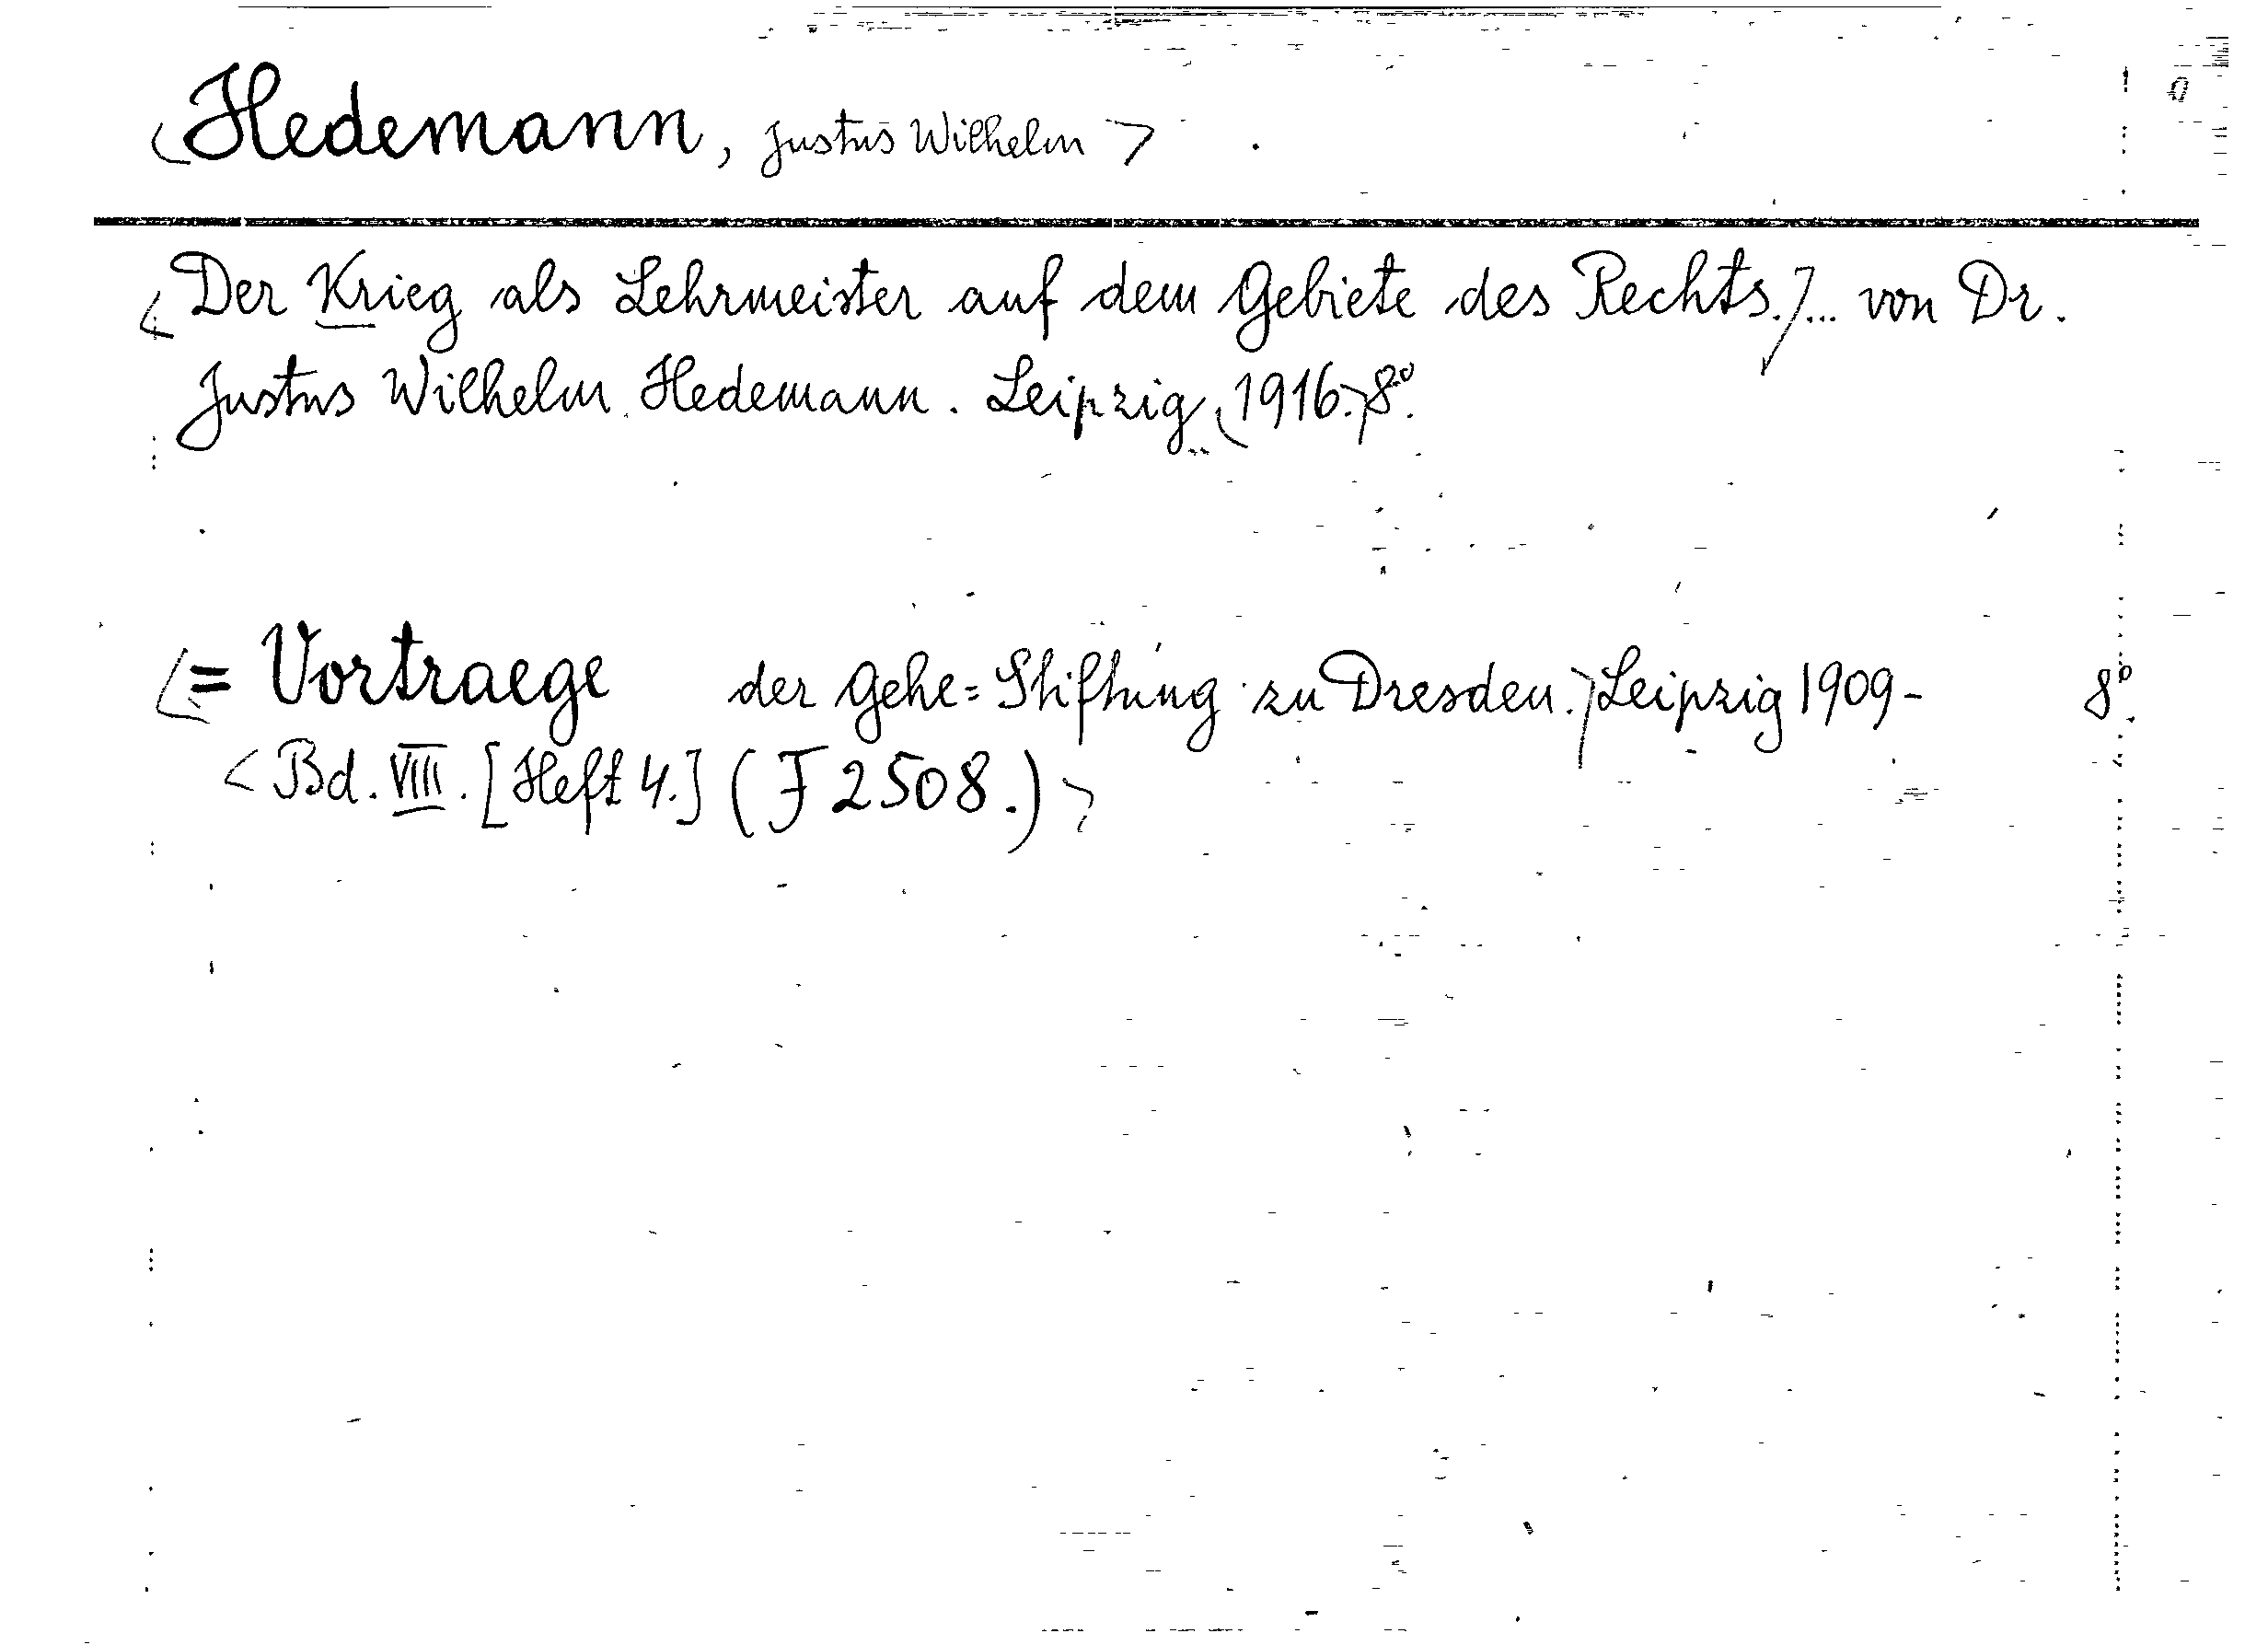 <Hedemann, Justus Wilhelm>
<Der Krieg als Lehrmeister auf dem Gebiete des Rechts.>... von Dr.
Justus Wilhelm Hedemann. Leipzig <1916.> 8º.
<= Vortraege der Gehe=Stiftung zu Dresden.> Leipzig 1909- 8º.
<Bd. VIII. [Heft 4.] (F 2508.)>